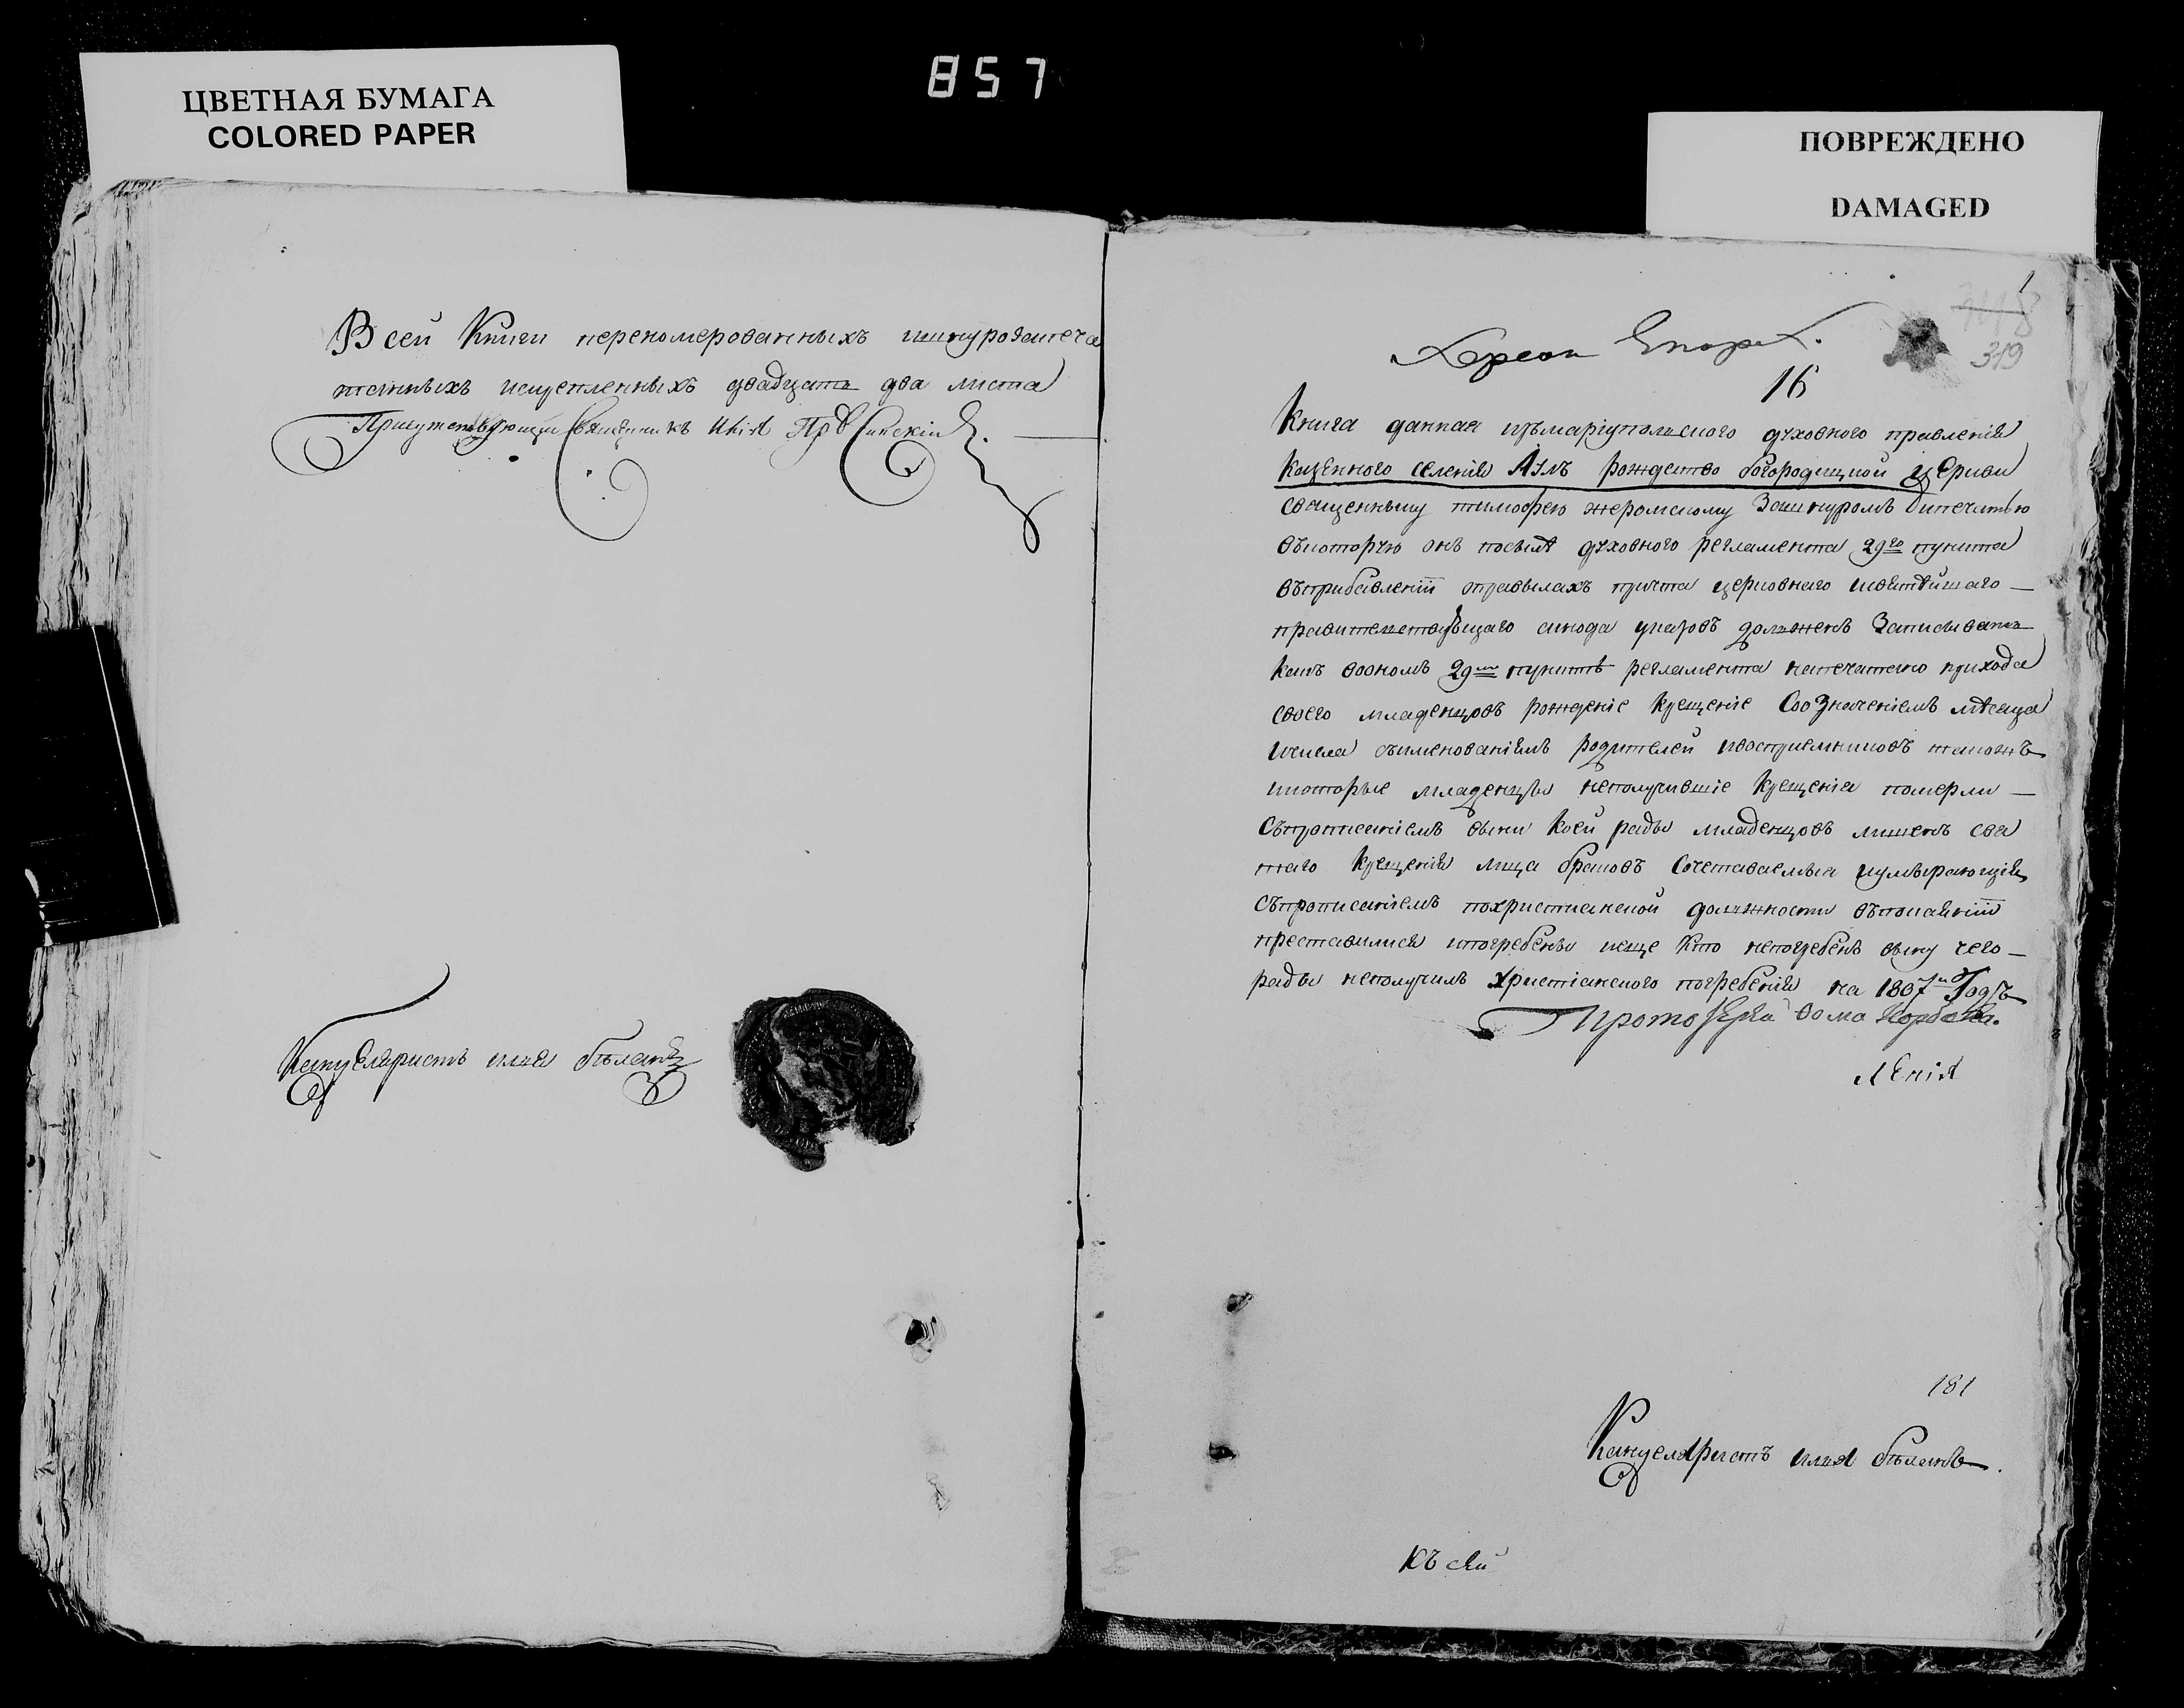 ЦВЕТНАЯ БУМАГА
COLORED PAPER
857
ПОВРЕЖДЕНО
DAMAGED
Всей Книги перекомерованныхъ ишнуродапеча
танныхъ исцепленныхъ двадцать два листа
Присутствующій Священникъ
Канцеляристъ илья бѣлашъ
1
319
Херсон Епарх.
16
Книга данная изъмаріупольского духовного правленія
казенного селенія Ялъ рождество богородицкой церкви
священнику тимофею жеромскому Зашнуромъ ипечатью
въкоторую онъ посилѣ духовного регламента 29го пункта
въприбавленіи оправилахъ причта церковнаго исвятѣйшаго
правителствующаго синода указовъ долженъ Записывать
какъ воономъ 29мъ пунктѣ регламента напечатано прихода
своего младенцовъ рожденіе крещеніе Соозначеніемъ мѣсяца
ичисла съименованіемъ родителей ивоспріемниковъ такожъ
икоторые младенцы неполучившіе крещенія померли
Съпрописаніемъ вины коей рады младенцовъ лишенъ свя
таго крещенія лица браковъ Сочетаваемыя иумирающія
Съпрописаніемъ похристианской должности въпокаяніи
преставилися ипогребены иеще кто непогребенъ вину чего
рады неполучилъ христіанского погребенія на 1807й Годъ
Протоіерей
181
Канцеляристъ илья бѣлашъ
Къ сей